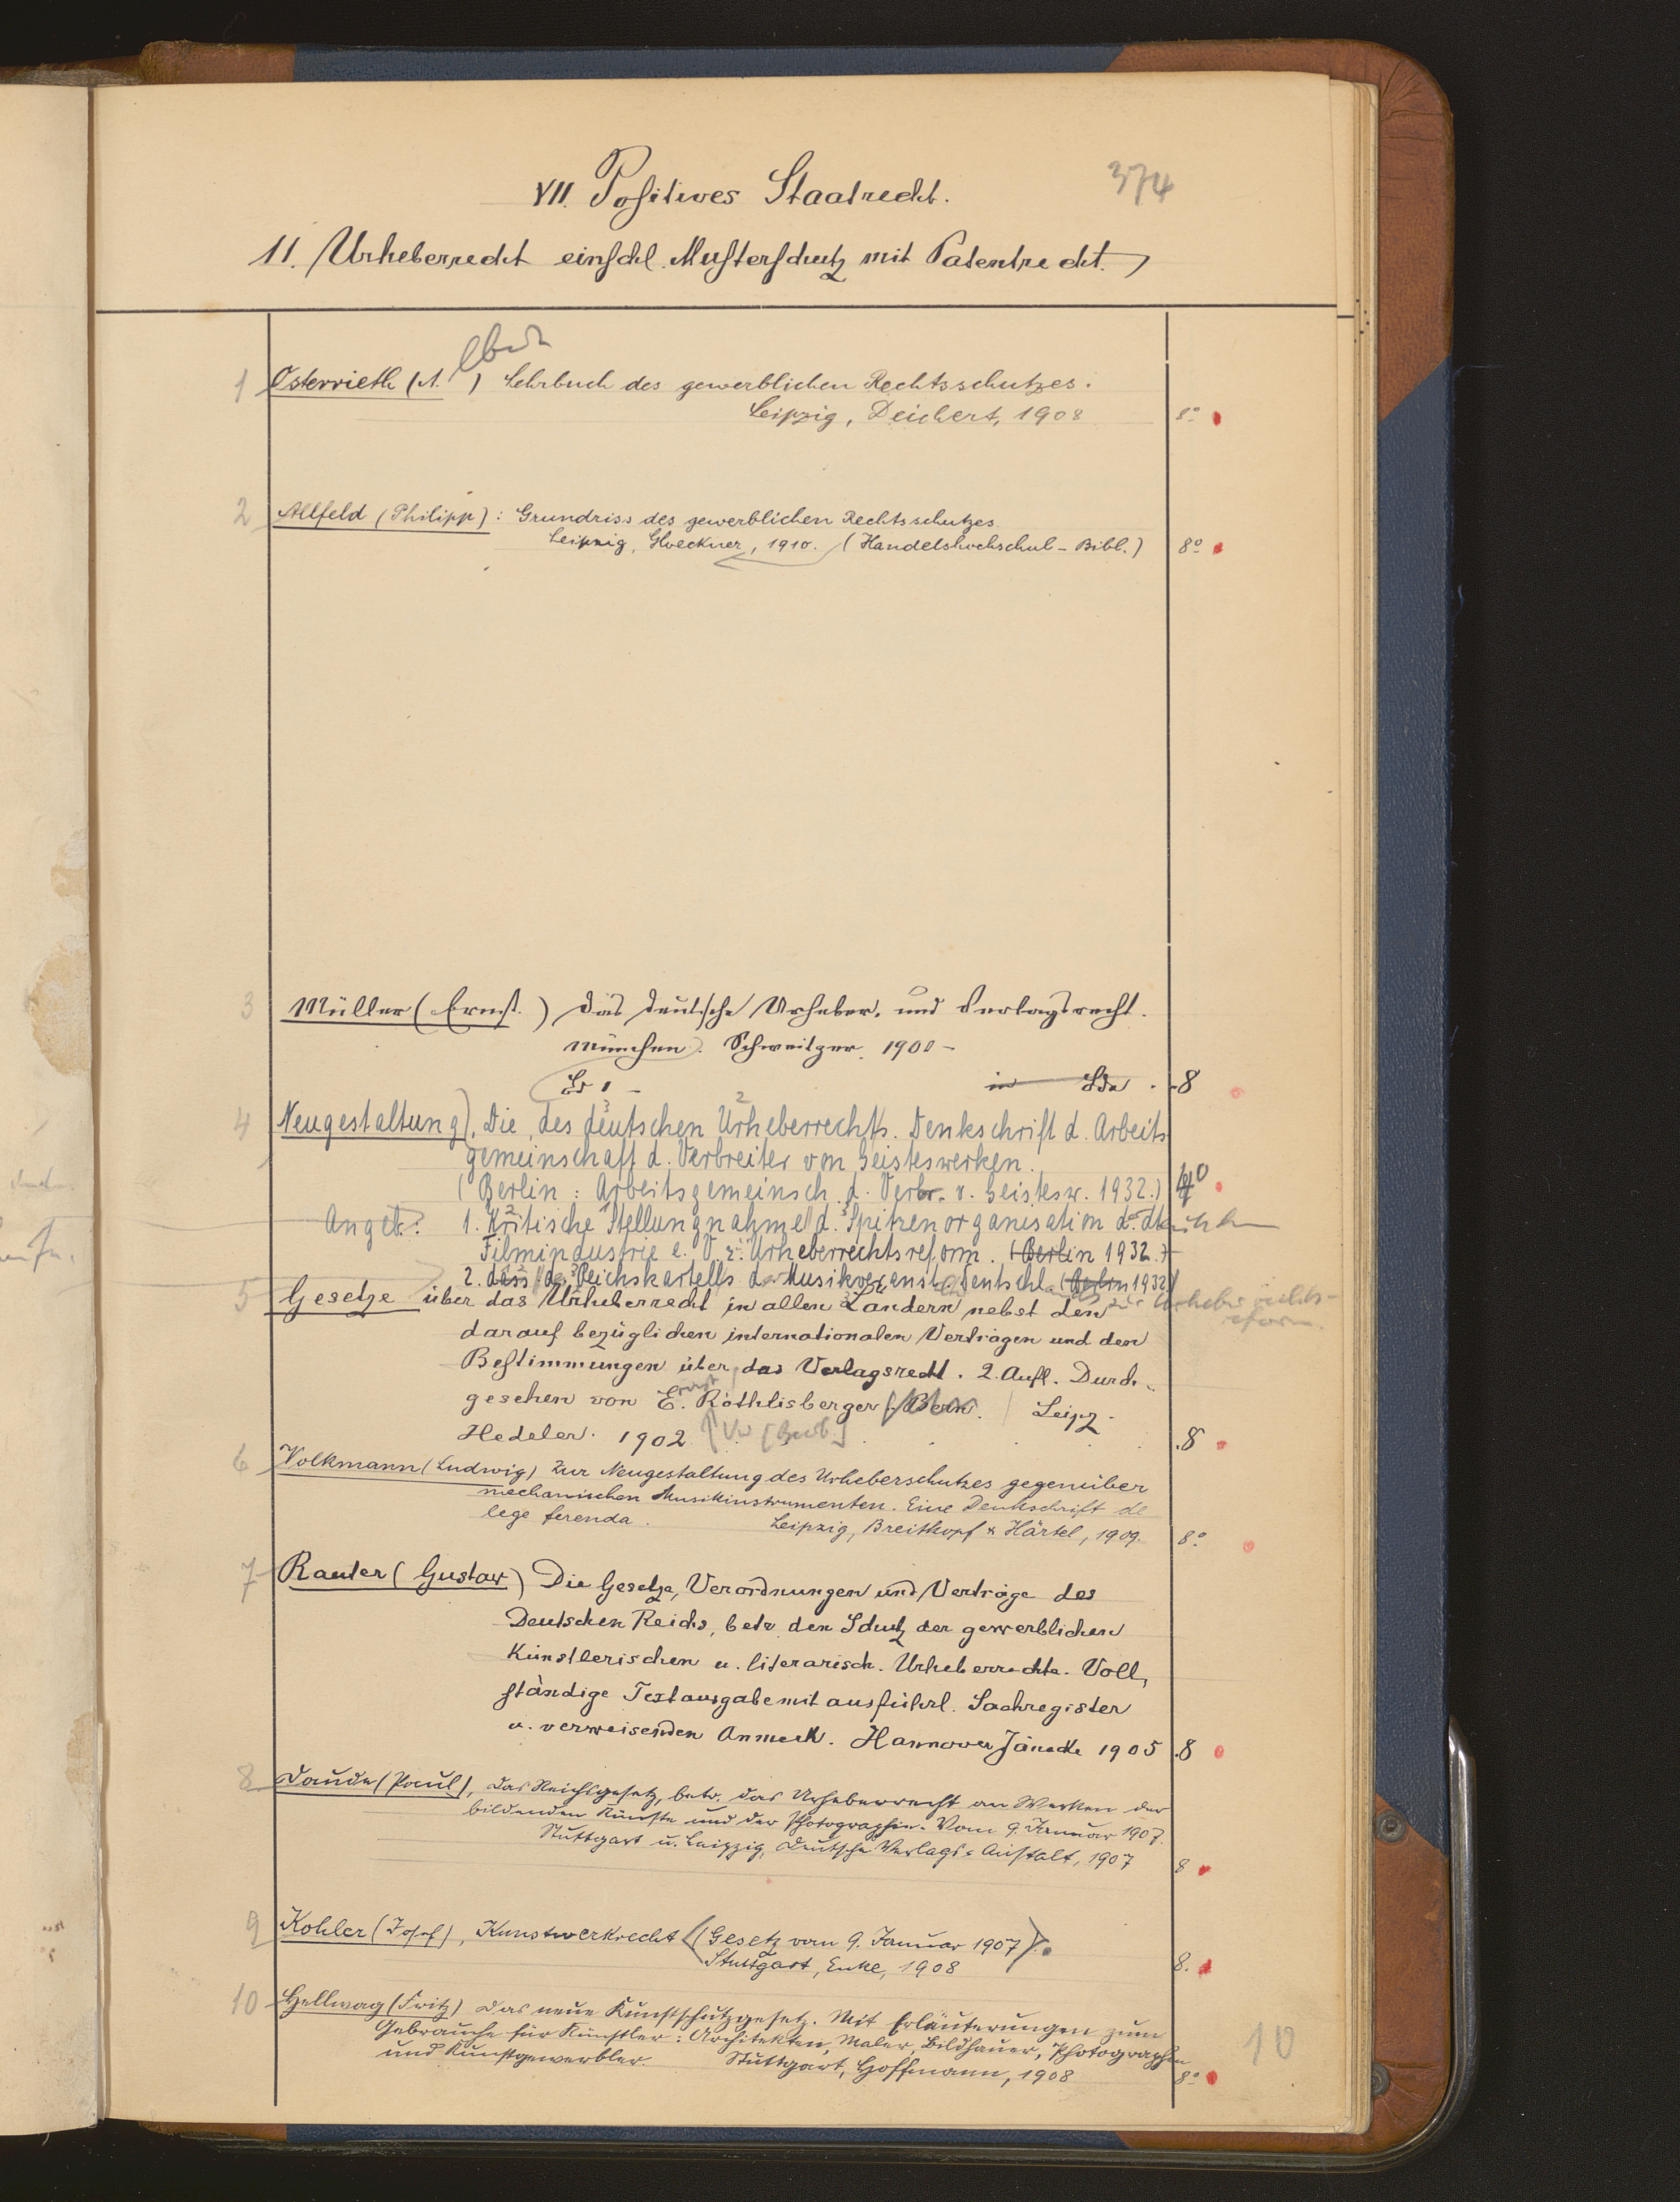 374
VII. Positives Staatrecht.
11. Urheberrecht einschl. Musterschutz mit Patentrecht.
1 Osterrieth (A. ) Lehrbuch des gewerblichen Rechtsschutzes.
Leipzig, Deichert, 1908 8°
2 Allfeld (Philipp): Grundriss des gewerblichen Rechtsschutzes
Leipzig, Gloeckner, 1910. (Handelshochschul-Bibl.) 8°
3 Müller (Ernst.) Das deutsche Urheber- und Verlagsrecht.
München. Schweitzer. 1901-
Bd 1 - in Bde. 8
4 Neugestaltung), Die, des deutschen Urheberrechts. Denkschrift d. Arbeits
gemeinschaft d. Verbreiter von Geisteswerken.
(Berlin: Arbeitsgemeinsch. d. Verbr. v. Geistesw. 1932.) 4°
Angeb.: 1. Kritische Stellungnahme d. Spitzenorganisation d. dt
Filmindustrie e. V. z. Urheberrechtsreform. (Berlin 1932.)
2. dass. des Reichskartells der Musikveranst. Deutschl. (Berlin 1932)
zur Urheberrechts-
reform.
5 Gesetze über das Urheberrecht in allen Ländern nebst den
darauf bezüglichen internationalen Verträgen und den
Bestimmungen über das Verlagsrecht. 2. Aufl. Durch-
gesehen von E. Röthlisberger Bern. Leipz.
Hedeler. 1902 8
6 Volkmann (Ludwig) Zur Neugestaltung des Urheberschutzes gegenüber
mechanischen Musikinstrumenten. Eine Denkschrift de
lege ferenda. Leipzig, Breitkopf & Härtel, 1909. 8°
7 Rauter (Gustav) Die Gesetze, Verordnungen und Verträge des
Deutschen Reichs, betr. den Schutz der gewerblichen
Künstlerischen u. literarisch. Urheberrechte. Voll-
ständige Textausgabe mit ausführl. Sachregister
u. verweisenden Anmerk. Hannover Jänecke 1905 8
8 Daude (Paul), Das Reichsgesetz, betr. das Urheberrecht an Werken der
bildenden Künste und der Photographie. Vom 9. Januar 1907.
Stuttgart u. Leipzig, Deutsche Verlags-Anstalt, 1907 8
9 Kohler (Josef), Kunstwerkrecht (Gesetz vom 9. Januar 1907).
Stuttgart, Enke, 1908 8.
10 Hellwag (Fritz) Das neue Kunstschutzgesetz. Mit Erläuterungen zum
Gebrauche für Künstler: Architekten, Maler, Bildhauer, Photographen
und Kunstgewerbler. Stuttgart, Hoffmann, 1908 8°
10